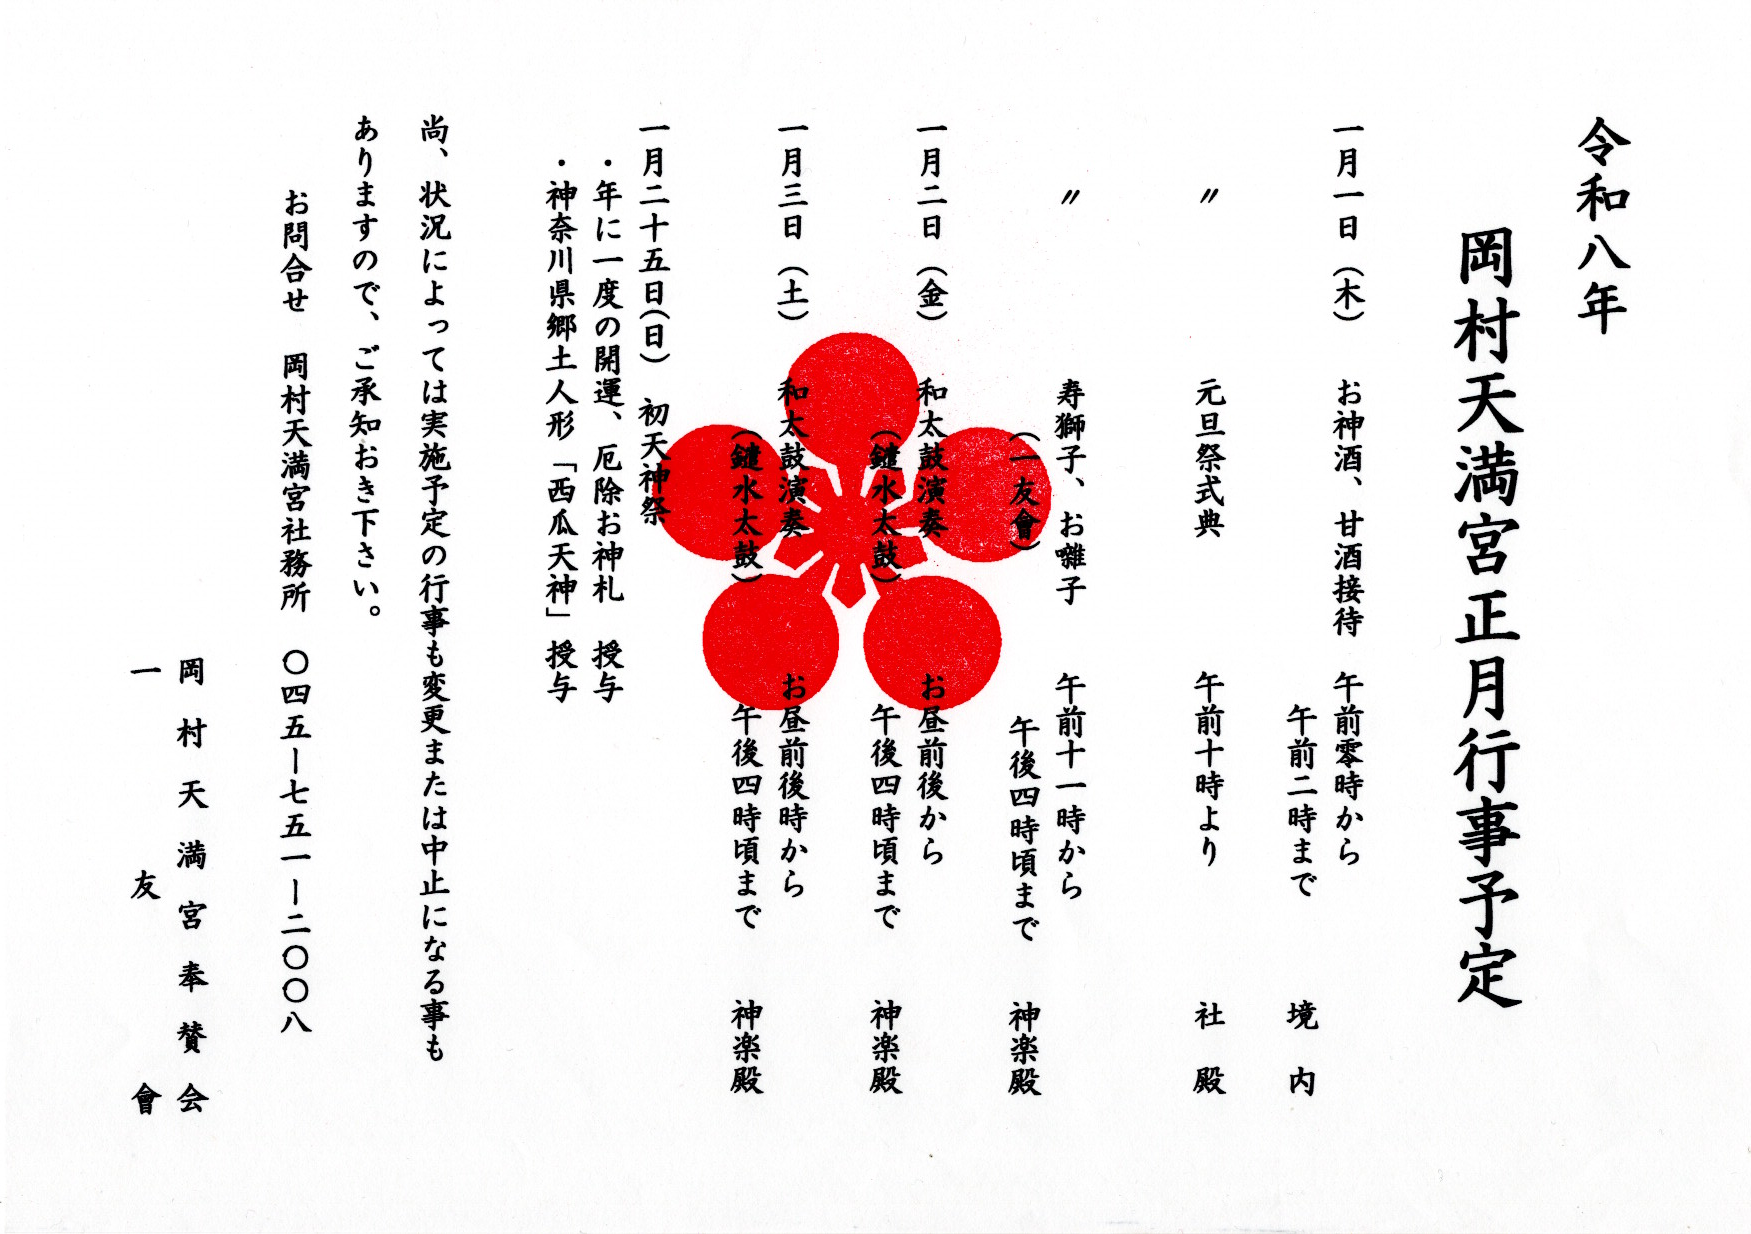 令和八年
岡村天満宮正月行事予定
一月一日（木）　お神酒、甘酒接待　午前零時から
午前二時まで　境内
〃　元旦祭式典　午前十時より　社殿
〃　寿獅子、お囃子　午前十一時から
（一友會）　午後四時頃まで　神楽殿
一月二日（金）　和太鼓演奏　お昼前後から
（鑓水太鼓）　午後四時頃まで　神楽殿
一月三日（土）　和太鼓演奏　お昼前後時から
（鑓水太鼓）　午後四時頃まで　神楽殿
一月二十五日（日）　初天神祭
・年に一度の開運、厄除お神札　授与
・神奈川県郷土人形「西瓜天神」授与
尚、状況によっては実施予定の行事も変更または中止になる事も
ありますので、ご承知おき下さい。
お問合せ　岡村天満宮社務所　〇四五ー七五一ー二〇〇八
岡村天満宮奉賛会
一友會